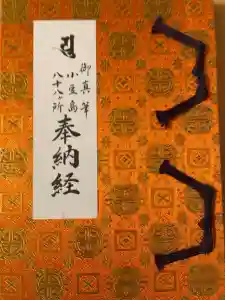 𑖀
御真筆
小豆島
八十八ヶ所
奉納経